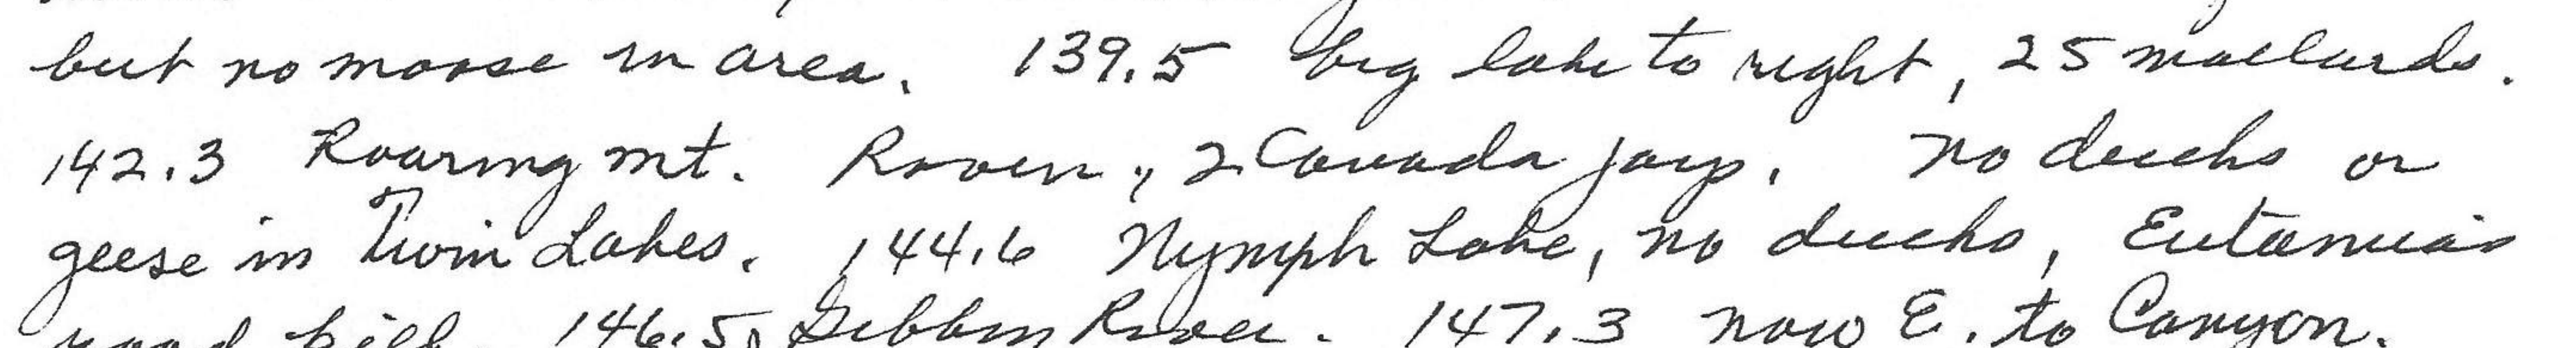 but no moose in area. 139.5 big lake to right, 25 mallards.
142.3 Roaring Mt. Raven, 2 Canada jays. No ducks or
geese in Twin Lakes. 144.6 Nymph Lake, no ducks, Eutamias
road kill. 146.5, Gibbon River. 147.3 now E. to Canyon.